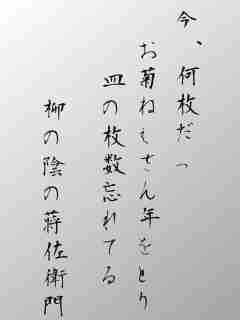 今、何枚だっ
お菊ねえさん年をとり
皿の枚数忘れてる
柳の陰の蒋佐衛門